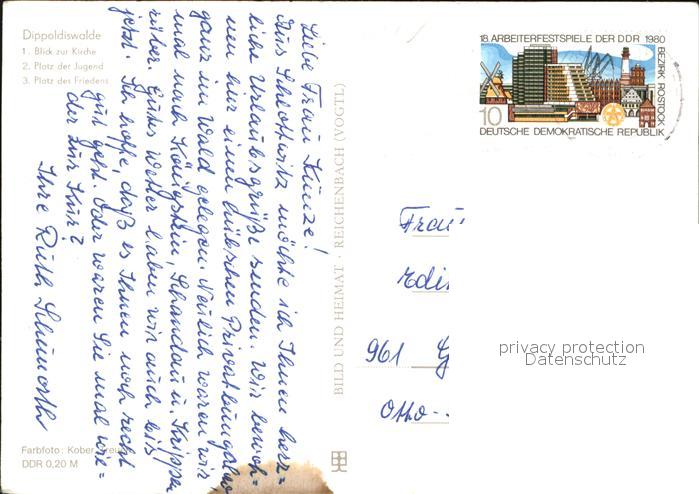 Dippoldiswalde
1. Blick zur Kirche
2. Platz der Jugend
3. Platz des Friedens
Liebe Frau Kunze!
Aus Schlottwitz möchte ich Ihnen herz=
liche Urlaubsgrüße senden. Wir bewoh=
nen hier einen hübschen Privatbungalow
ganz im Wald gelegen. Neulich waren wir
mal nach Königstein, Schandau u. Krippen
rüber. Gutes Wetter haben wir auch bis
jetzt. Ich hoffe, daß es Ihnen noch recht
gut geht. Oder waren Sie mal wie=
der zur Kur?
Ihre Ruth
Farbfoto: Kober,
DDR 0,20 M
BILD UND HEIMAT · REICHENBACH (VOGTL)
18. ARBEITERFESTSPIELE DER DDR 1980
BEZIRK ROSTOCK
10
DEUTSCHE DEMOKRATISCHE REPUBLIK
Frau
961 G
Otto-
privacy protection
Datenschutz